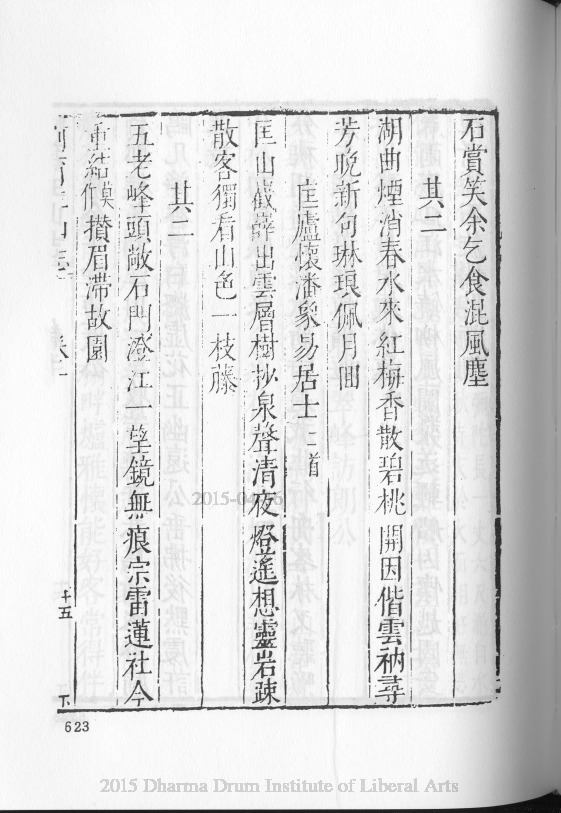 石賞笑余乞食混風塵
其二
湖曲煙消春水來紅梅香散碧桃開因偕雲衲尋
芳晚新句琳琅佩月回
匡廬懷潘象易居士二首
匡山巀嶭出雲層樹抄泉聲清夜燈遙想靈岩疎
散客獨看山色一枝藤
其二
五老峰頭敞石門澄江一望鏡無痕宗雷蓮社今
重結傞攢眉滯故園
卷十
五
下
623
2015 Dharma Drum Institute of Liberal Arts